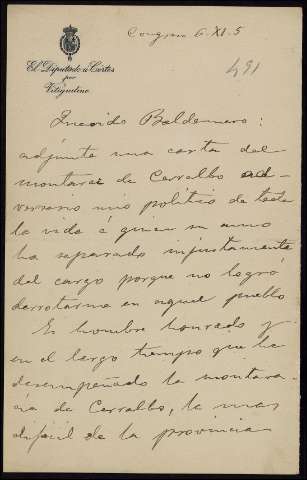 Congreso 6. XI. 5
491
El Diputado á Cortes
por
Vitigudino
Querido Baldomero:
adjunta una carta del
montaraz de Cerralbo ad-
versario mio politico de toda
la vida á quien su amo
ha separado injustamente
del cargo porque no logró
derrotarme en aquel pueblo
Es hombre honrado y
en el largo tiempo que ha
desempeñado la montara-
cia de Cerralbo, la mas
dificil de la provincia